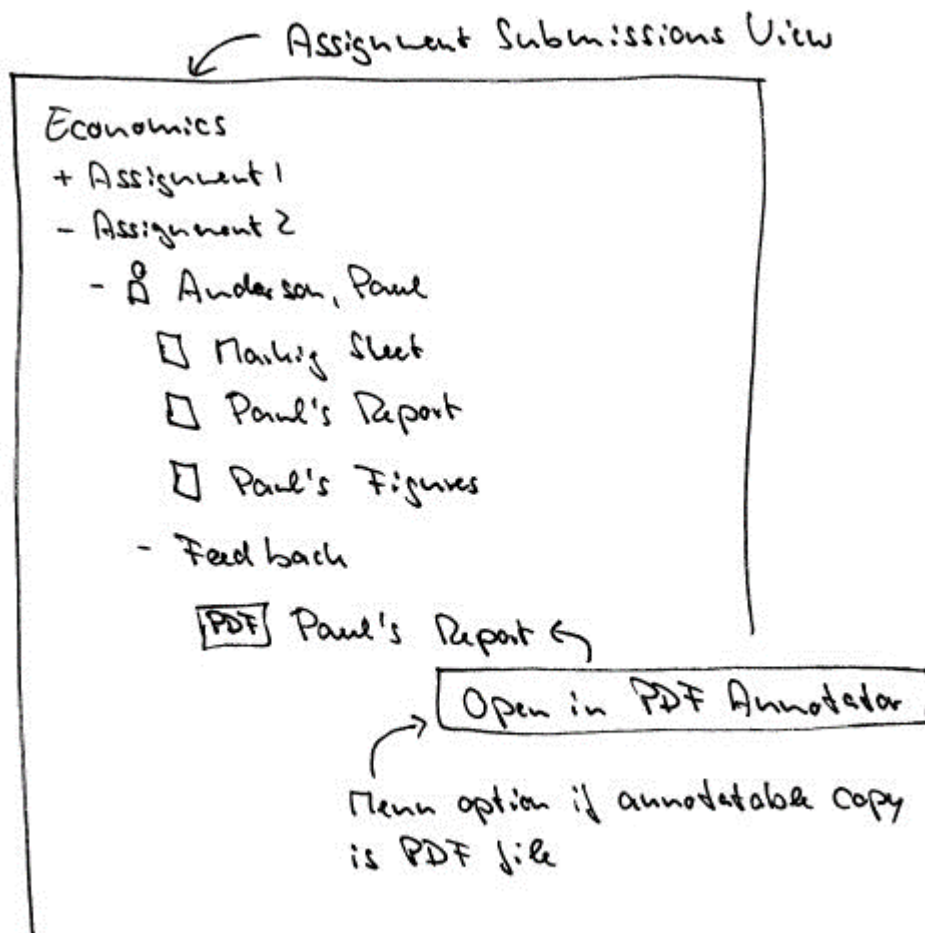 Assignment Submissions View
Economics
+ Assignment 1
- Assignment 2
- Anderson, Paul
Marking Sheet
Paul's Report
Paul's Figures
- Feedback
PDF Paul's Report
Open in PDF Annotator
Menu option if annotatable copy
is PDF file